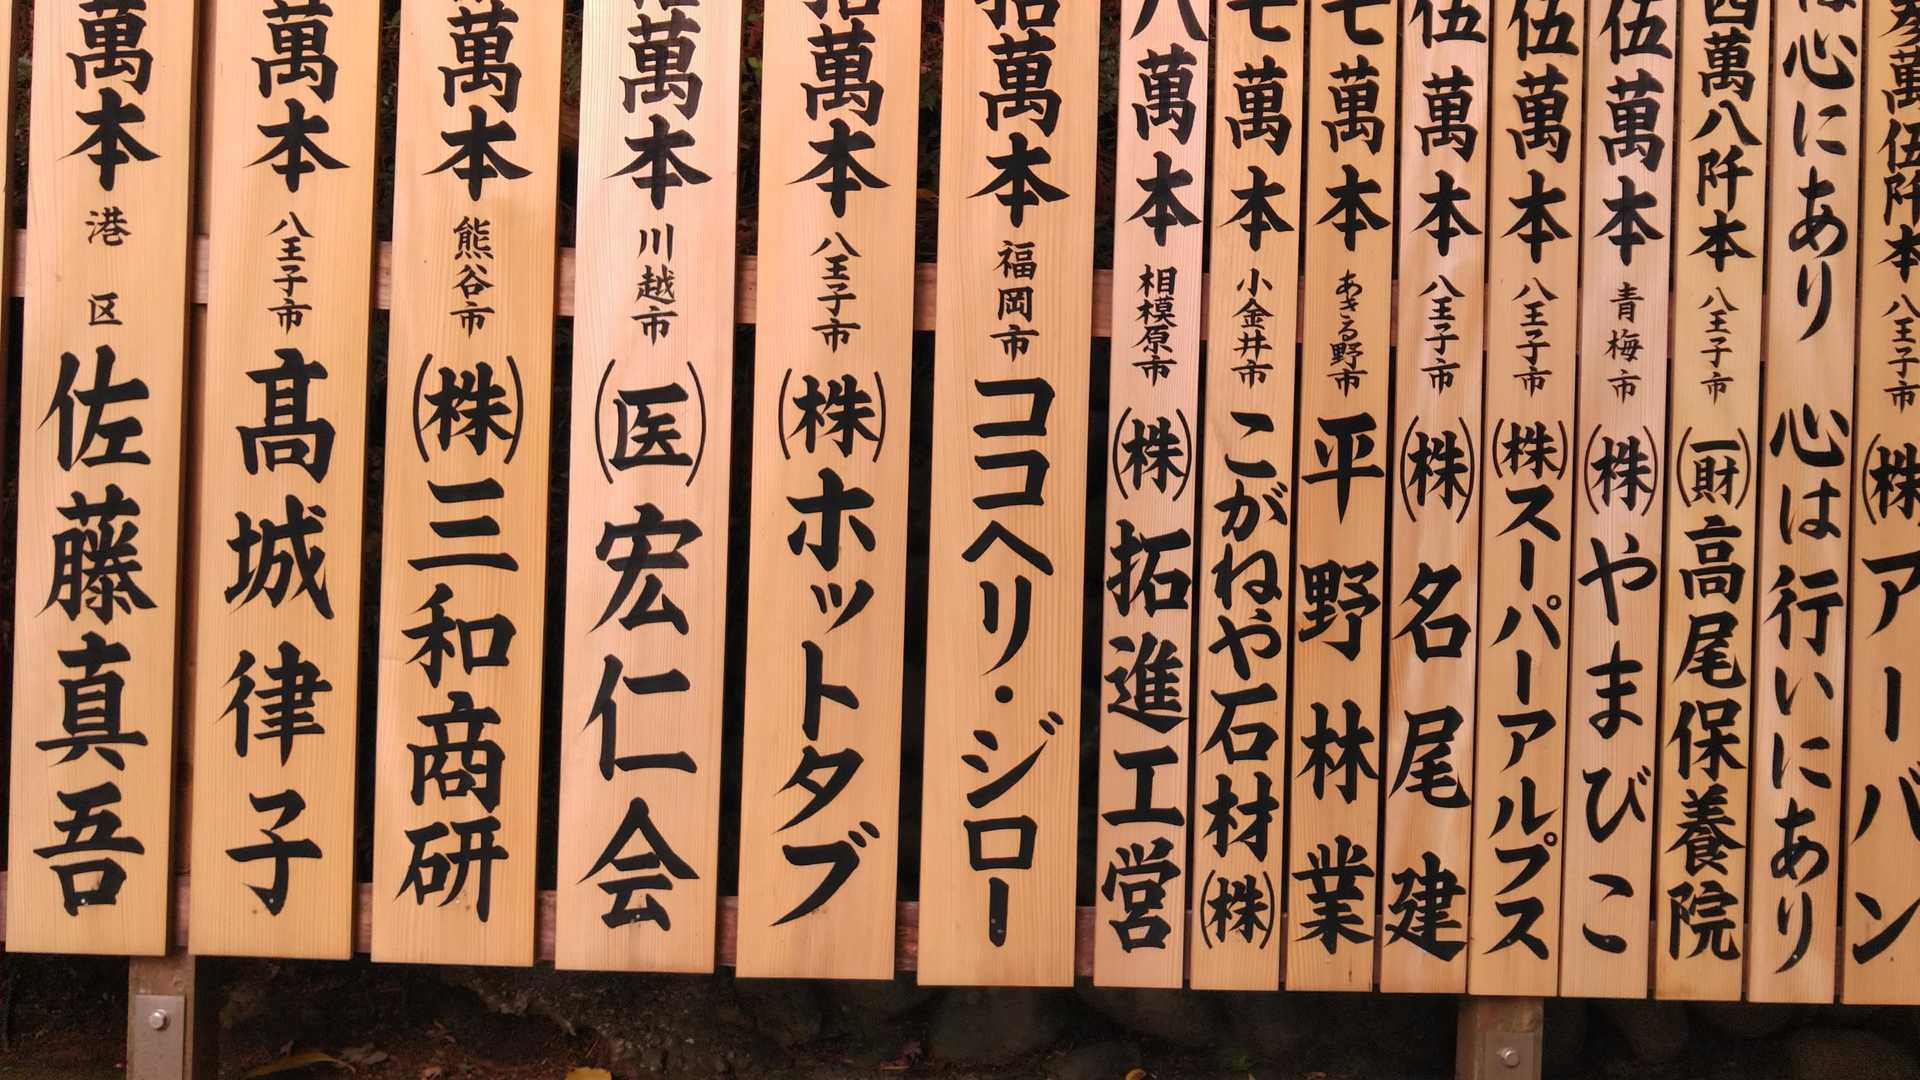 萬伍阡本 八王子市 (株)アーバン
は心にあり 心は行いにあり
四萬八阡本 八王子市 (一財)高尾保養院
伍萬本 青梅市 (株)やまびこ
伍萬本 八王子市 (株)スーパーアルプス
伍萬本 八王子市 (株)名尾建
七萬本 あきる野市 平野林業
七萬本 小金井市 こがねや石材(株)
八萬本 相模原市 (株)拓進工営
拾萬本 福岡市 ココヘリ・ジロー
拾萬本 八王子市 (株)ホットタブ
萬本 川越市 (医)宏仁会
萬本 熊谷市 (株)三和商研
萬本 八王子市 髙城律子
萬本 港区 佐藤真吾